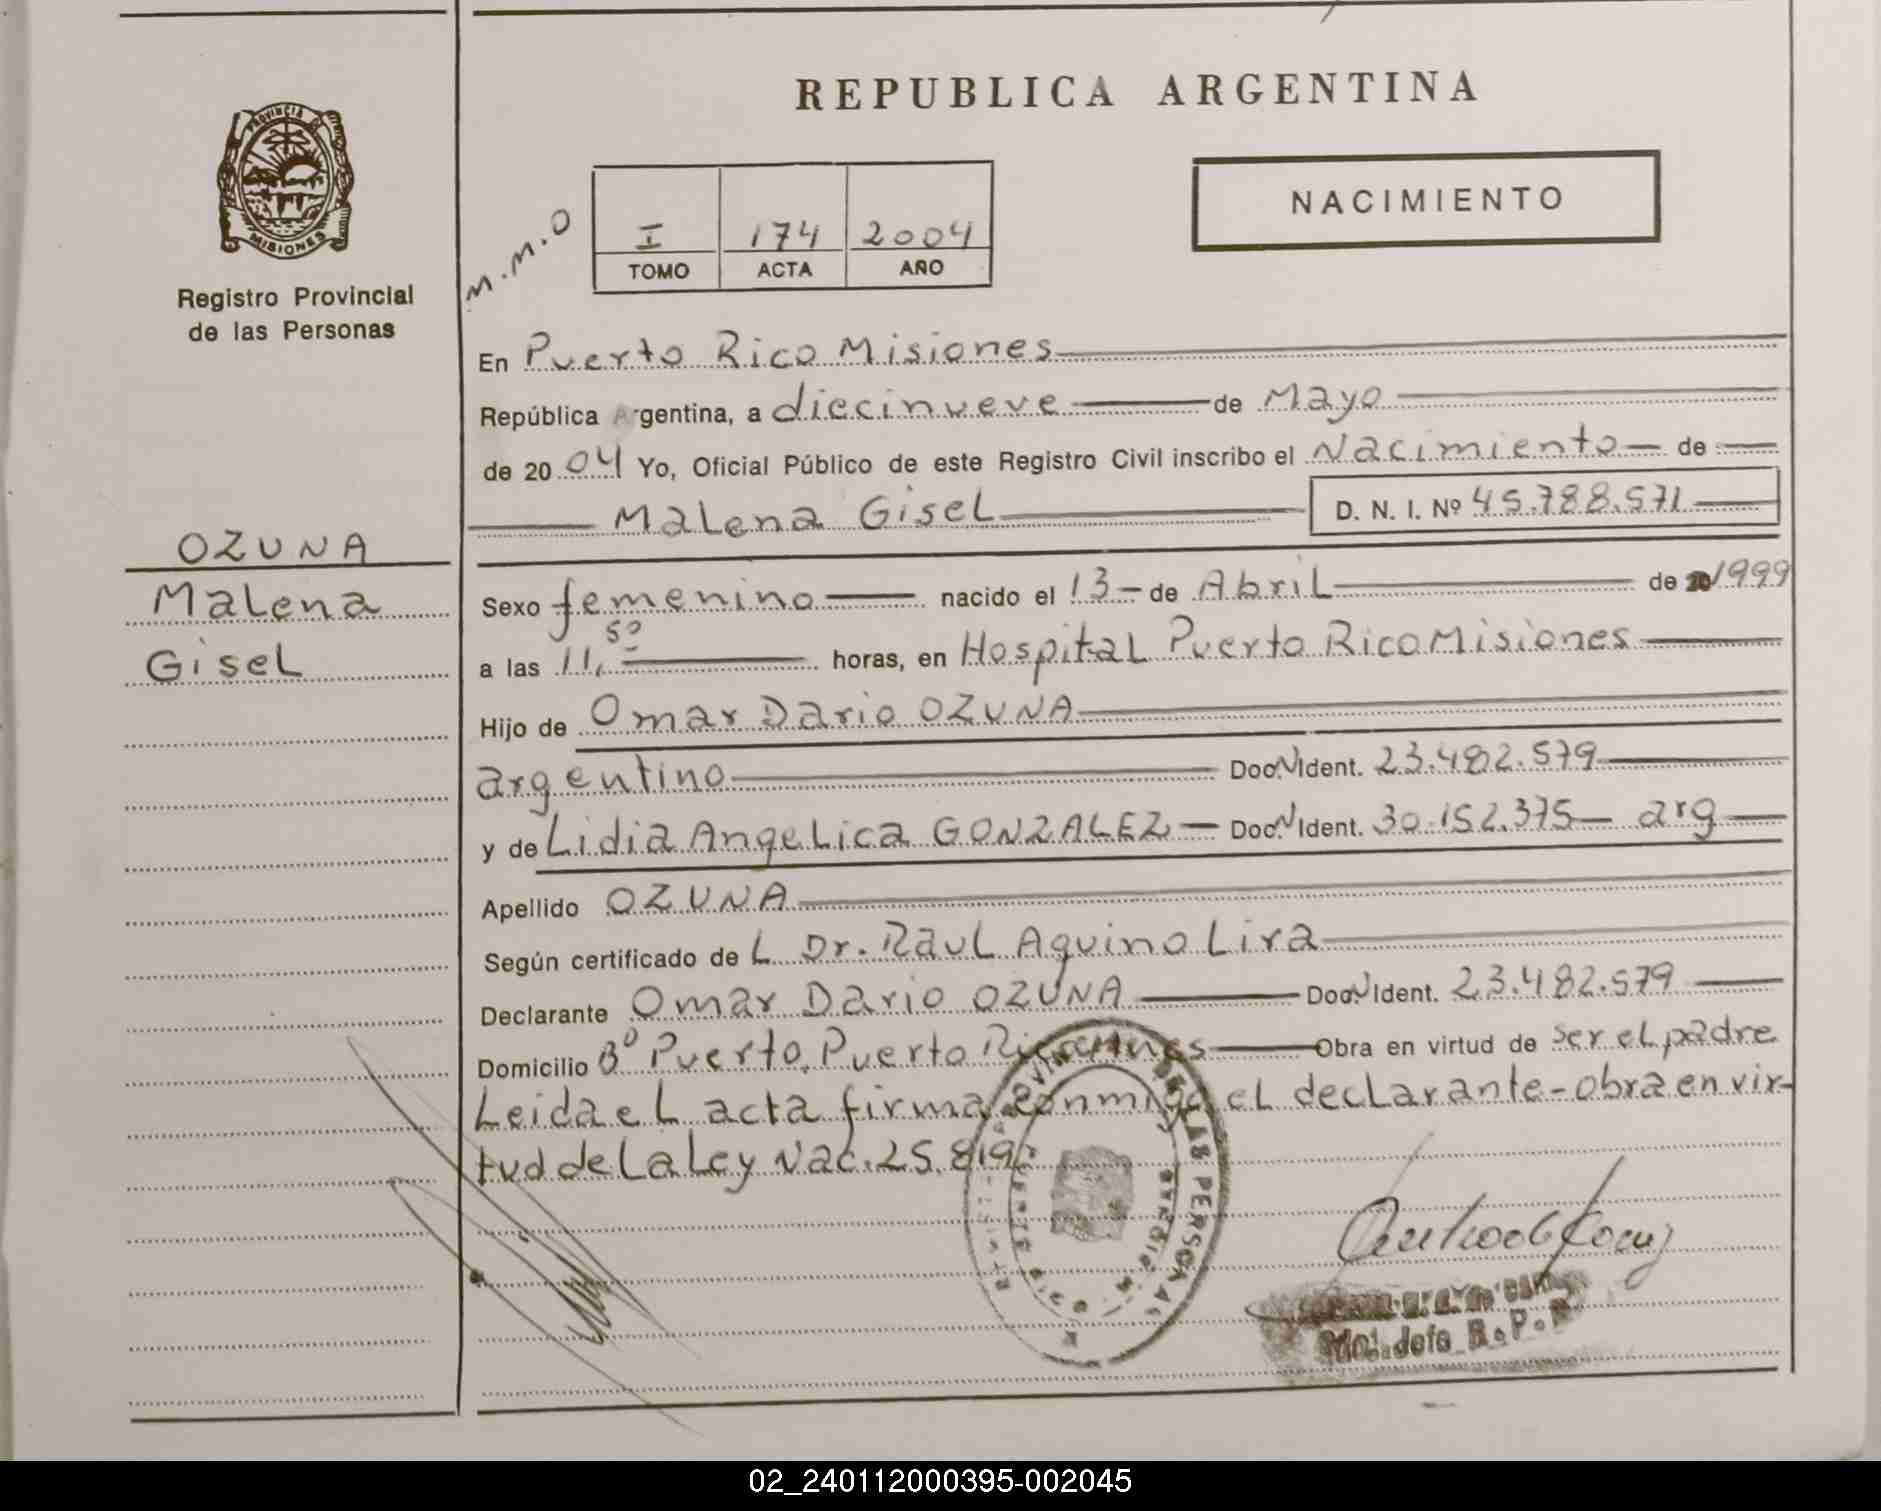 REPUBLICA ARGENTINA
PROVINCIA DE
MISIONES
Registro Provincial
de las Personas
M.M.O
I 174 2004
TOMO ACTA AÑO
NACIMIENTO
En Puerto Rico Misiones
República Argentina, a diecinueve de Mayo
de 20 04 Yo, Oficial Público de este Registro Civil inscribo el Nacimiento de
Malena Gisel D. N. I. Nº 45.788.571
OZUNA
Malena
Gisel
Sexo femenino nacido el 13 de Abril de 20 1999
a las 11,50 horas, en Hospital Puerto Rico Misiones
Hijo de Omar Dario OZUNA
argentino Doc. N Ident. 23.482.579
y de Lidia Angelica GONZALEZ Doc. N Ident. 30.152.375 arg
Apellido OZUNA
Según certificado de L Dr. Raul Aquino Lira
Declarante Omar Dario OZUNA Doc. N Ident. 23.482.579
Domicilio Bº Puerto. Puerto Rico Mnes Obra en virtud de ser el padre
Leida el acta firma conmigo el declarante-obra en vir-
tud de La Ley Nac. 25.819
DE LAS PERSONAS
R.P.P.
02_240112000395-002045